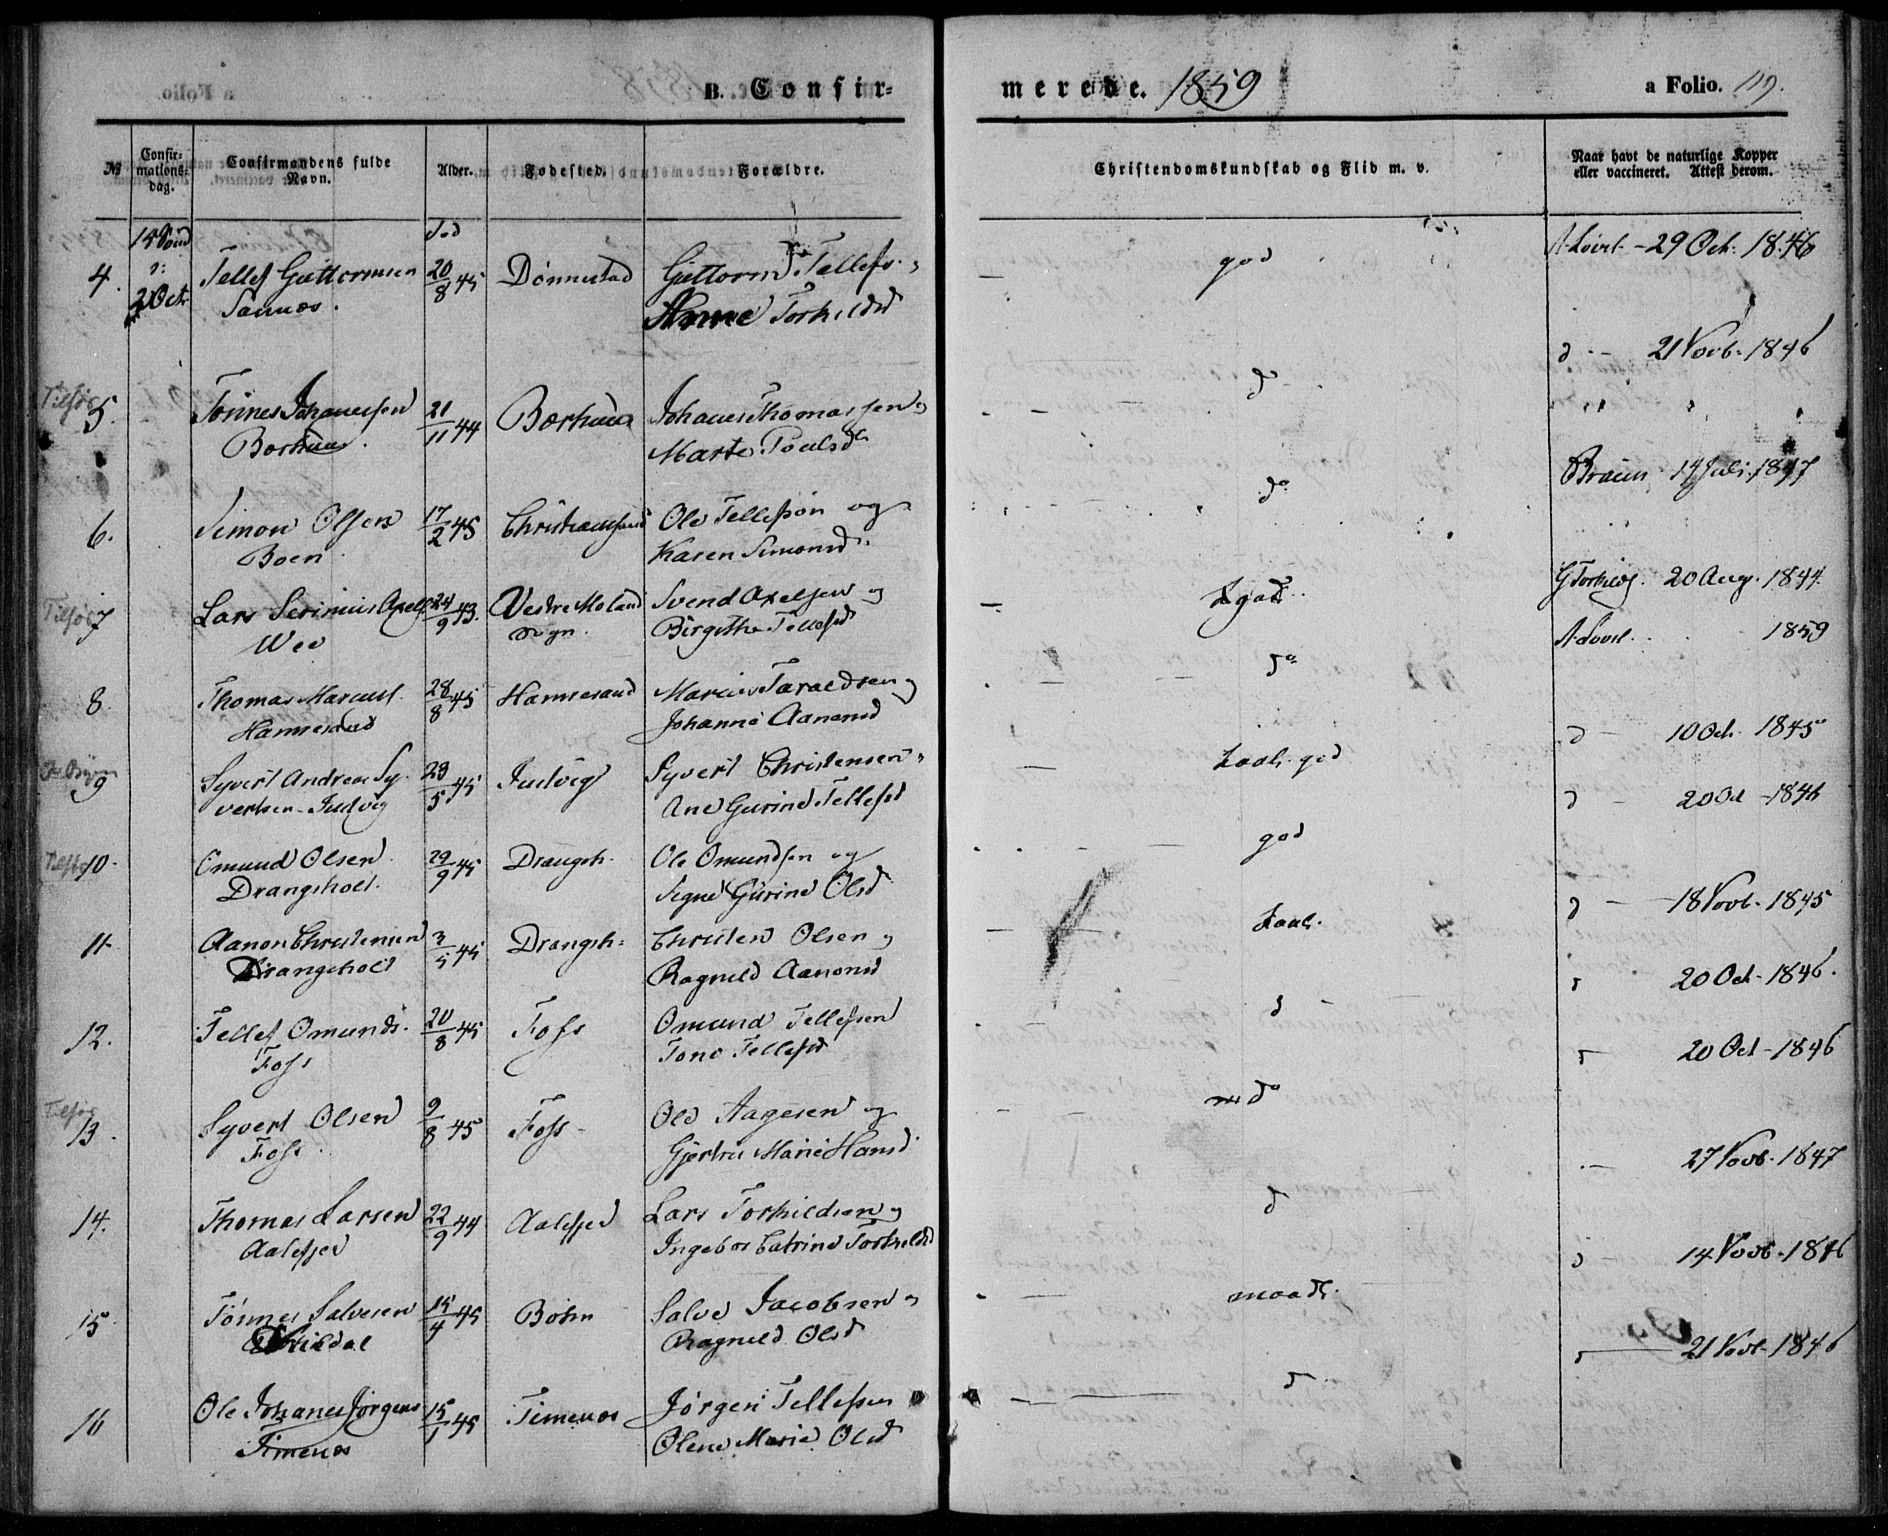 B. Confir-
merede. 1859
a Folio. 119.
№
Confir-
mations-
dag.
Confirmandens fulde
Navn.
Alder.
Fødested.
Forældre.
Christendomskundskab og Flid m. v.
Naar havt de naturlige Kopper
eller vaccineret. Attest derom.
4. 2 Oct Tellef Guttormsen 20/8 45 Dønnestad Guttorm Tellefs. god 29 Oct. 1846
Sannæs. Anne Torkildsd
5. Tønnes Johannessen 21/11 44 Borhuus Johannes Thomassen d 21 Novb. 1846
Borhuus. Marte Poulsd
6. Simon Olsen 17/2 45 Christianssand Ole Tellefsøn og do Bruun 14 Juli 1847
Boen. Karen Simonsd.
7 Lars Severinius Axels 24/9 43. Vestre Moland Svend Axelsen og 20 Aug. 1844.
Wee Sogn. Birgithe Tellefsd 1859
8. Thomas Marcus. 28/8 45 Hannesand Marcus Taraldsen og do
Hannesand Johanne Aanonsd 10 Oct. 1845
9 Syvert Andreas Sy- 23/5 45 Justvig Syvert Christensen, god
vertsen Justvig Ane Gurine Tellefsd d 20 Oct - 1846
10. Omund Olsen 29/9 45 Drangsh. Ole Omundsen og god
Drangsholt. Signe Gurine Olsd d 18 Novb. 1845
11. Aanon Christensen 3/5 45 Drangsh. Christen Olsen og
Drangsholt Ragnild Aanonsd 20 Oct. 1846.
12. Tellef Omunds. 20/8 45 Foss Omund Tellefsen d
Foss Tone Tellefsd 20 Oct - 1846
Tilføg
13. Syvert Olsen 9/8 45 Foss Ole Aagesen og do
Foss Gjertru Marie Hansd 27 Novb. 1847
14. Thomas Larsen 22/9 44 Aalefjed Lars Torkildsen og d
Aalefjed Ingebor Catrine Torkildsd d 14 Novb. 1846
15. Tønnes Salvesen 15/4 45 Bøhn Salve Jacobsen og maadl.
Ragnild Olsd 21 Novb. 1846
16 Ole Johannes Jørgens 15/1 45 Timenes Jørgen Tellefsen d
Timenes Olene Marie Olsd